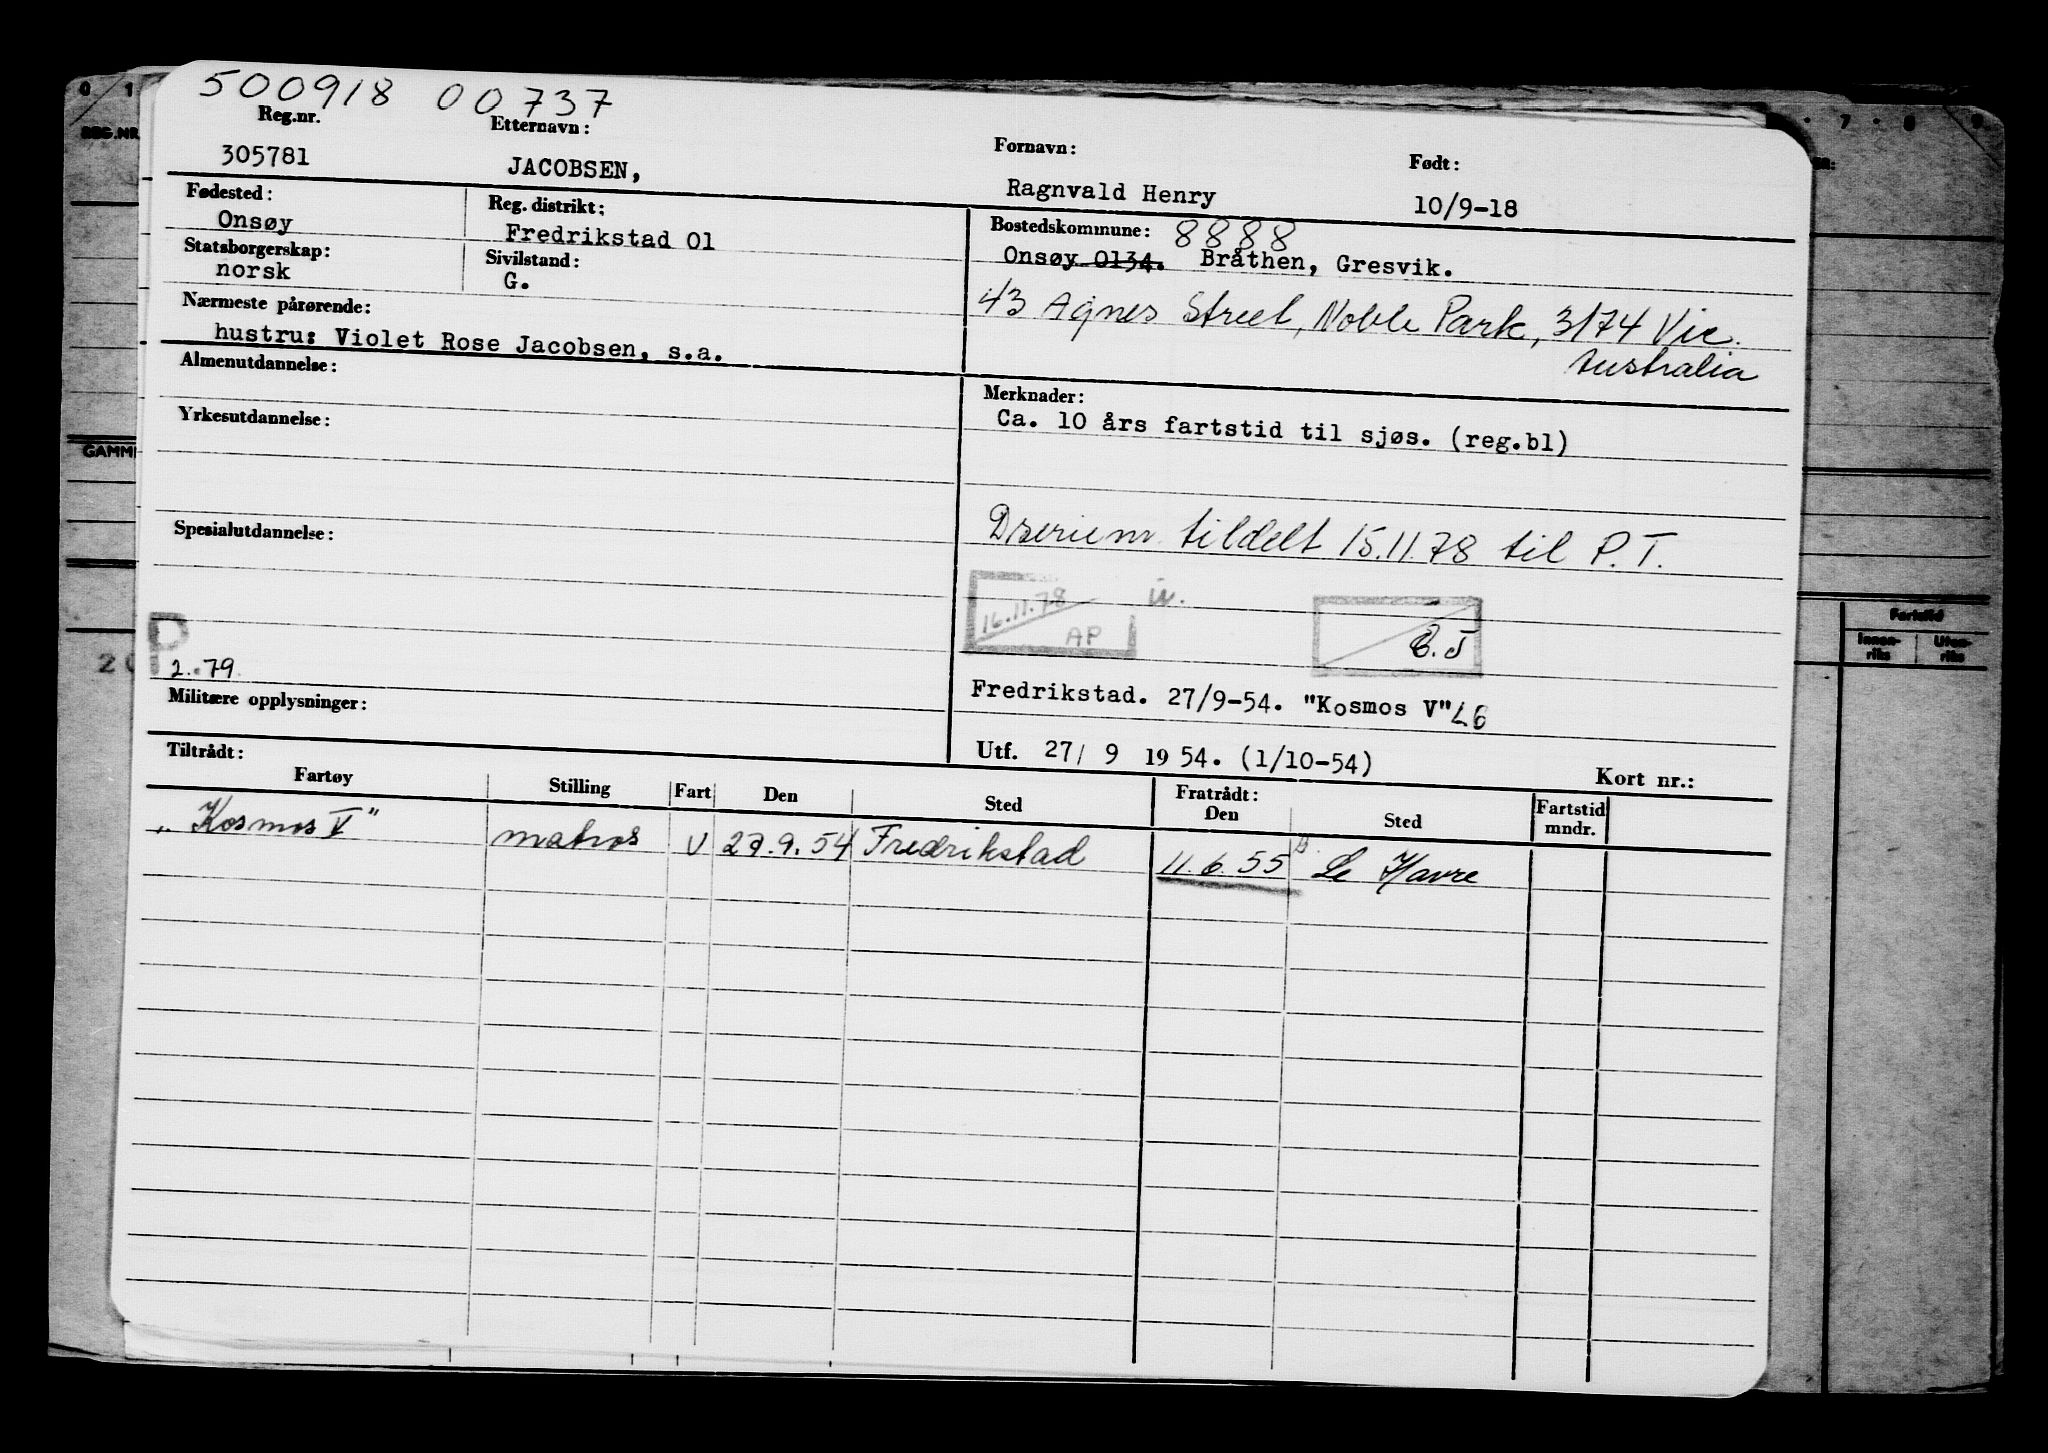 500918 00737
Reg.nr. Etternavn: Fornavn: Født:
305781 JACOBSEN, Ragnvald Henry 10/9-18
Fødested: Reg. distrikt: Bostedskommune: 8888
Onsøy Fredrikstad 01 Onsøy 0134. Bråthen, Gresvik.
Statsborgerskap: Sivilstand:
norsk G.
43 Agnes Street, Noble Park, 3174 Vic.
Australia
Nærmeste pårørende:
hustru: Violet Rose Jacobsen, s.a.
Almenutdannelse: Merknader:
Ca. 10 års fartstid til sjøs. (reg.bl)
Yrkesutdannelse:
tildelt 15.11.78 til P.T.
Spesialutdannelse:
16.11.78
AP
P
2.79.
Militære opplysninger: Fredrikstad. 27/9-54. "Kosmos V" L6
Tiltrådt: Utf. 27/ 9 19 54. (1/10-54) Kort nr.:
Fartøy Stilling Fart Den Sted Fratrådt: Den Sted Fartstid mndr.
"Kosmos V" matros U 27.9.54 Fredrikstad 11.6.55 Le Havre
0 1 7 · 8 9
REG.NR
GAMM
20
Fartstid
Innen-riks Uten-riks